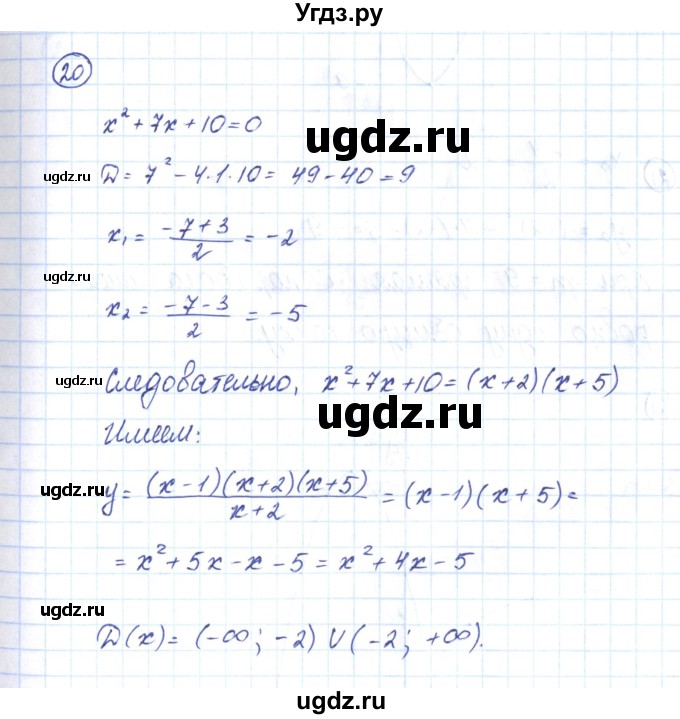 Угдз.ру
20
x² + 7x + 10 = 0
ugdz.ru
ugdz.ru
D = 7² - 4·1·10 = 49 - 40 = 9
x₁ = (-7 + 3)/2 = -2
ugdz.ru
x₂ = (-7 - 3)/2 = -5
ugdz.ru
Следовательно, x² + 7x + 10 = (x + 2)(x + 5)
ugdz.ru
Имеем:
ugdz.ru
y = (x - 1)(x + 2)(x + 5)/(x + 2) = (x - 1)(x + 5) =
= x² + 5x - x - 5 = x² + 4x - 5
ugdz.ru
D(x) = (-∞; -2) ∪ (-2; +∞).
ugdz.ru